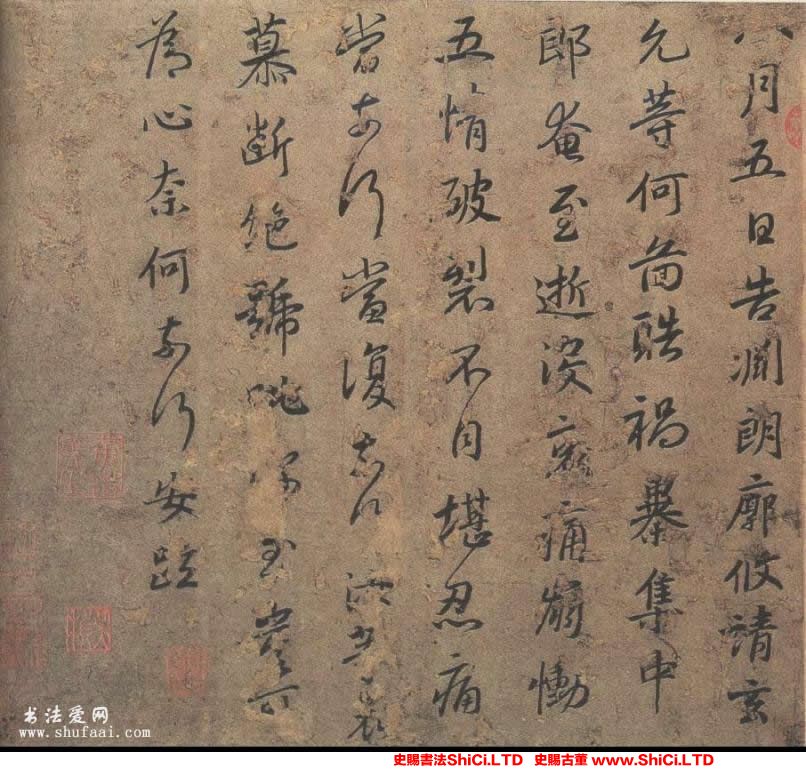 八月五日告淵朗廓攸靖玄
允等何圖酷禍暴集中
郎奄至逝沒哀痛崩慟
五情破裂不自堪忍痛
當奈何當復奈何汝等哀
慕斷絕號咷深至豈可
為心奈何奈何安疏
书法爱网
www.shufaai.com
史賜書法ShiCi.LTD 史賜古董 www.ShiCi.LTD